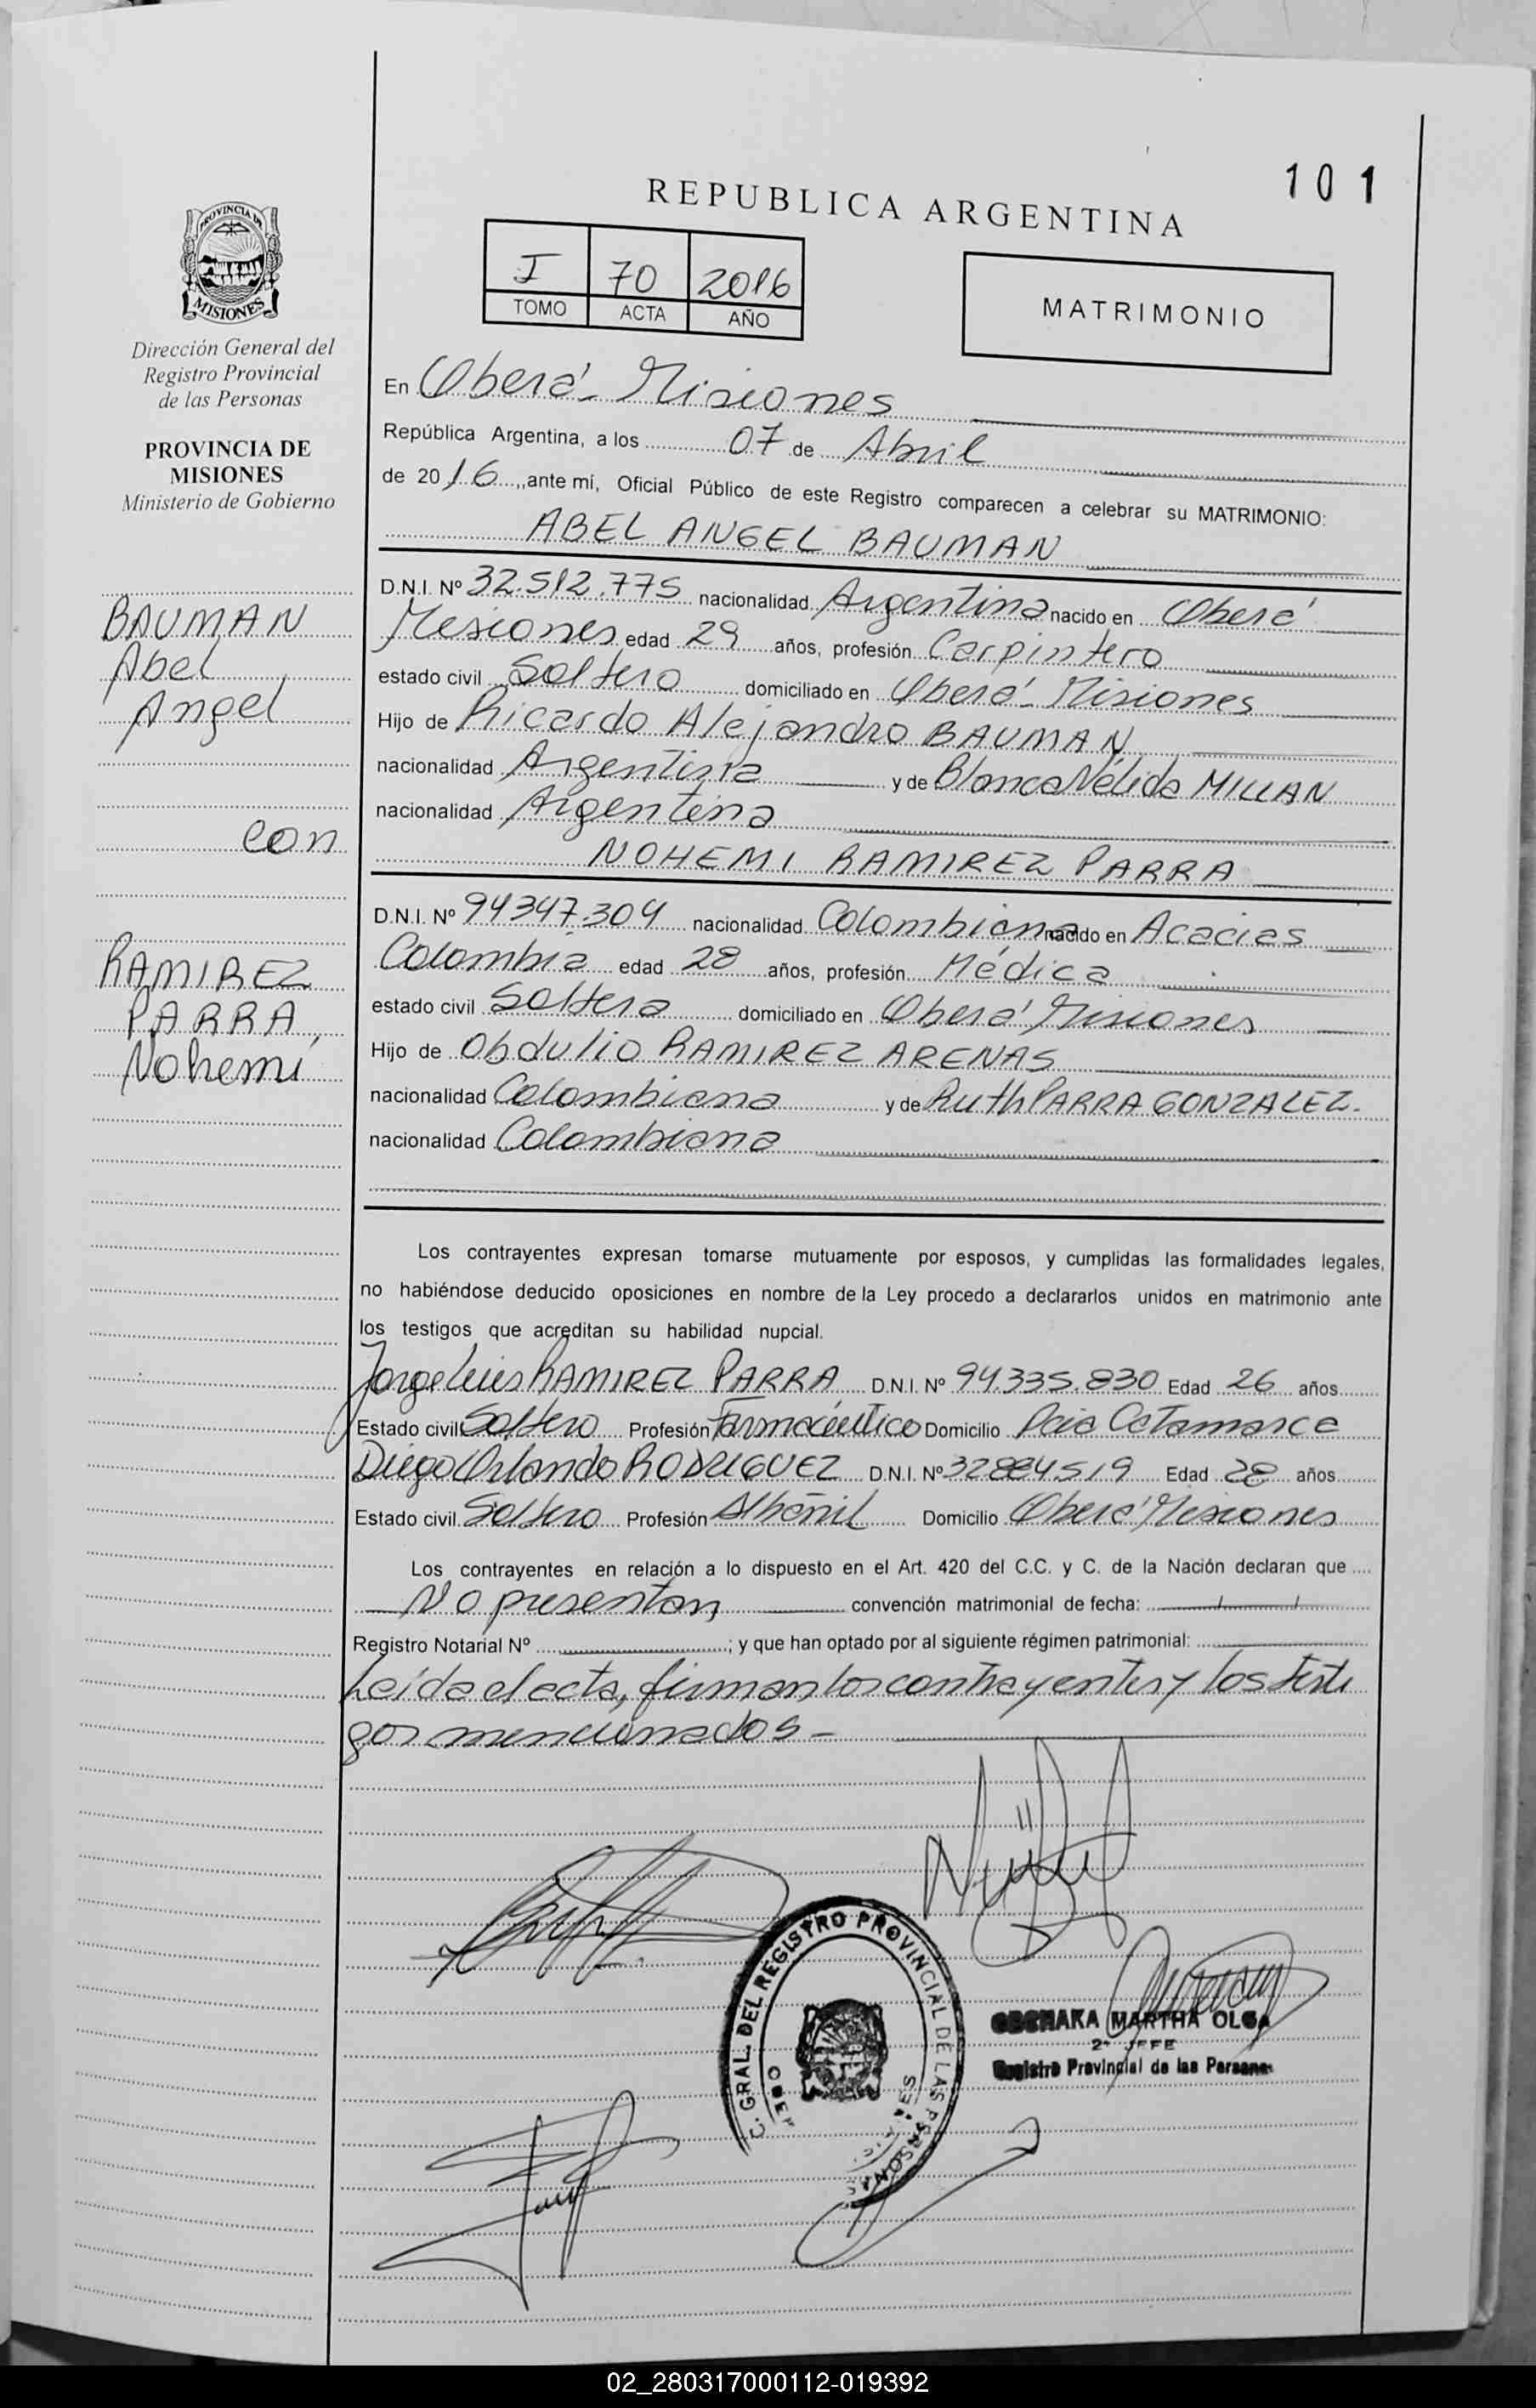 101
REPUBLICA ARGENTINA
I 70 2016
TOMO ACTA AÑO
MATRIMONIO
PROVINCIA DE
MISIONES
Dirección General del
Registro Provincial
de las Personas
PROVINCIA DE
MISIONES
Ministerio de Gobierno
BAUMAN
Abel
Angel
con
RAMIREZ
PARRA,
Nohemí
En Oberá - Misiones
República Argentina, a los 07 de Abril
de 2016, ante mí, Oficial Público de este Registro comparecen a celebrar su MATRIMONIO:
ABEL ANGEL BAUMAN
D.N.I. Nº 32.512.775 nacionalidad Argentina nacido en Oberá
Misiones edad 29 años, profesión Carpintero
estado civil Soltero domiciliado en Oberá - Misiones
Hijo de Ricardo Alejandro BAUMAN
nacionalidad Argentina y de Blanca Nélida MILLAN
nacionalidad Argentina
NOHEMI RAMIREZ PARRA
D.N.I. Nº 94347.304 nacionalidad Colombiana nacido en Acacias
Colombia edad 28 años, profesión Médica
estado civil Soltera domiciliado en Oberá Misiones
Hijo de Obdulio RAMIREZ ARENAS
nacionalidad Colombiana y de Ruth PARRA GONZALEZ.
nacionalidad Colombiana
Los contrayentes expresan tomarse mutuamente por esposos, y cumplidas las formalidades legales,
no habiéndose deducido oposiciones en nombre de la Ley procedo a declararlos unidos en matrimonio ante
los testigos que acreditan su habilidad nupcial.
Jorge Luis RAMIREZ PARRA D.N.I. Nº 94.335.830 Edad 26 años
Estado civil Soltero Profesión Farmacéutico Domicilio Pcia Catamarca
Diego Orlando RODRIGUEZ D.N.I. Nº 32884519 Edad 28 años
Estado civil Soltero Profesión Albañil Domicilio Oberá Misiones
Los contrayentes en relación a lo dispuesto en el Art. 420 del C.C. y C. de la Nación declaran que
No presentan convención matrimonial de fecha: / /
Registro Notarial Nº ; y que han optado por al siguiente régimen patrimonial:
Leída el acta, firman los contrayentes y los testi
gos mencionados -
GRAL. DEL REGISTRO PROVINCIAL DE LAS PERSONAS
MARTHA OLGA
2º JEFE
Registro Provincial de las Personas
02_280317000112-019392